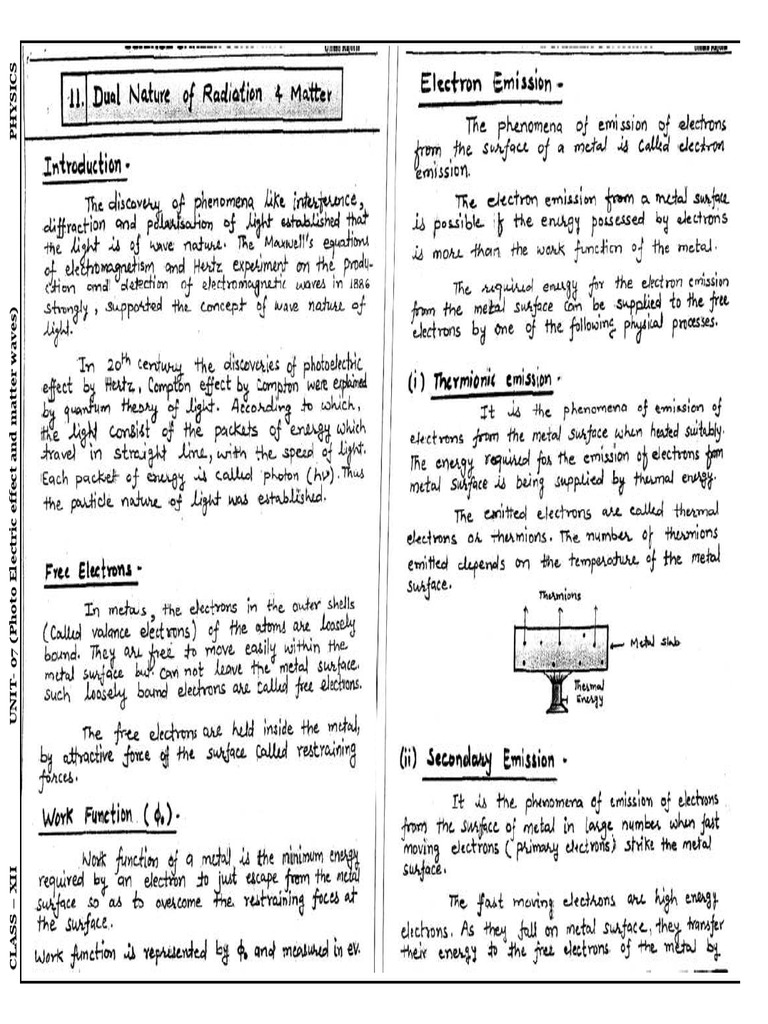 PHYSICS
UNIT- 07 (Photo Electric effect and matter waves)
CLASS – XII
11. Dual Nature of Radiation & Matter
Introduction -
The discovery of phenomena like interference,
diffraction and polarisation of light established that
the light is of wave nature. The Maxwell's equations
of electromagnetism and Hertz experiment on the produ-
ction and detection of electromagnetic waves in 1886
strongly, supported the concept of wave nature of
light.
In 20th century the discoveries of photoelectric
effect by Hertz, Compton effect by Compton were explained
by quantum theory of light. According to which,
the light consist of the packets of energy which
travel in straight line, with the speed of light.
Each packet of energy is called photon (hν). Thus
the particle nature of light was established.
Free Electrons -
In metals, the electrons in the outer shells
(Called valance electrons) of the atoms are loosely
bound. They are free to move easily within the
metal surface but can not leave the metal surface.
such loosely bound electrons are called free electrons.
The free electrons are held inside the metal,
by attractive force of the surface called restraining
forces.
Work Function (ϕ₀) -
Work function of a metal is the minimum energy
required by an electron to just escape from the metal
surface so as to overcome the restraining foces at
the surface.
Work function is represented by ϕ₀ and measured in ev.
Electron Emission -
The phenomena of emission of electrons
from the surface of a metal is called electron
emission.
The electron emission from a metal surface
is possible if the energy possessed by electrons
is more than the work function of the metal.
The required energy for the electron emission
from the metal surface can be supplied to the free
electrons by one of the following physical processes.
(i) Thermionic emission -
It is the phenomena of emission of
electrons from the metal surface when heated suitably.
The energy required for the emission of electrons from
metal surface is being supplied by thermal energy.
The emitted electrons are called thermal
electrons or thermions. The number of thermions
emitted depends on the temperature of the metal
surface.
Thermions
Metal slab
Thermal
Energy
(ii) Secondary Emission -
It is the phenomena of emission of electrons
from the surface of metal in large number when fast
moving electrons (primary electrons) strike the metal
surface.
The fast moving electrons are high energy
elictrons. As they fall on metal surface, they transfer
their energy to the free electrons of the metal by